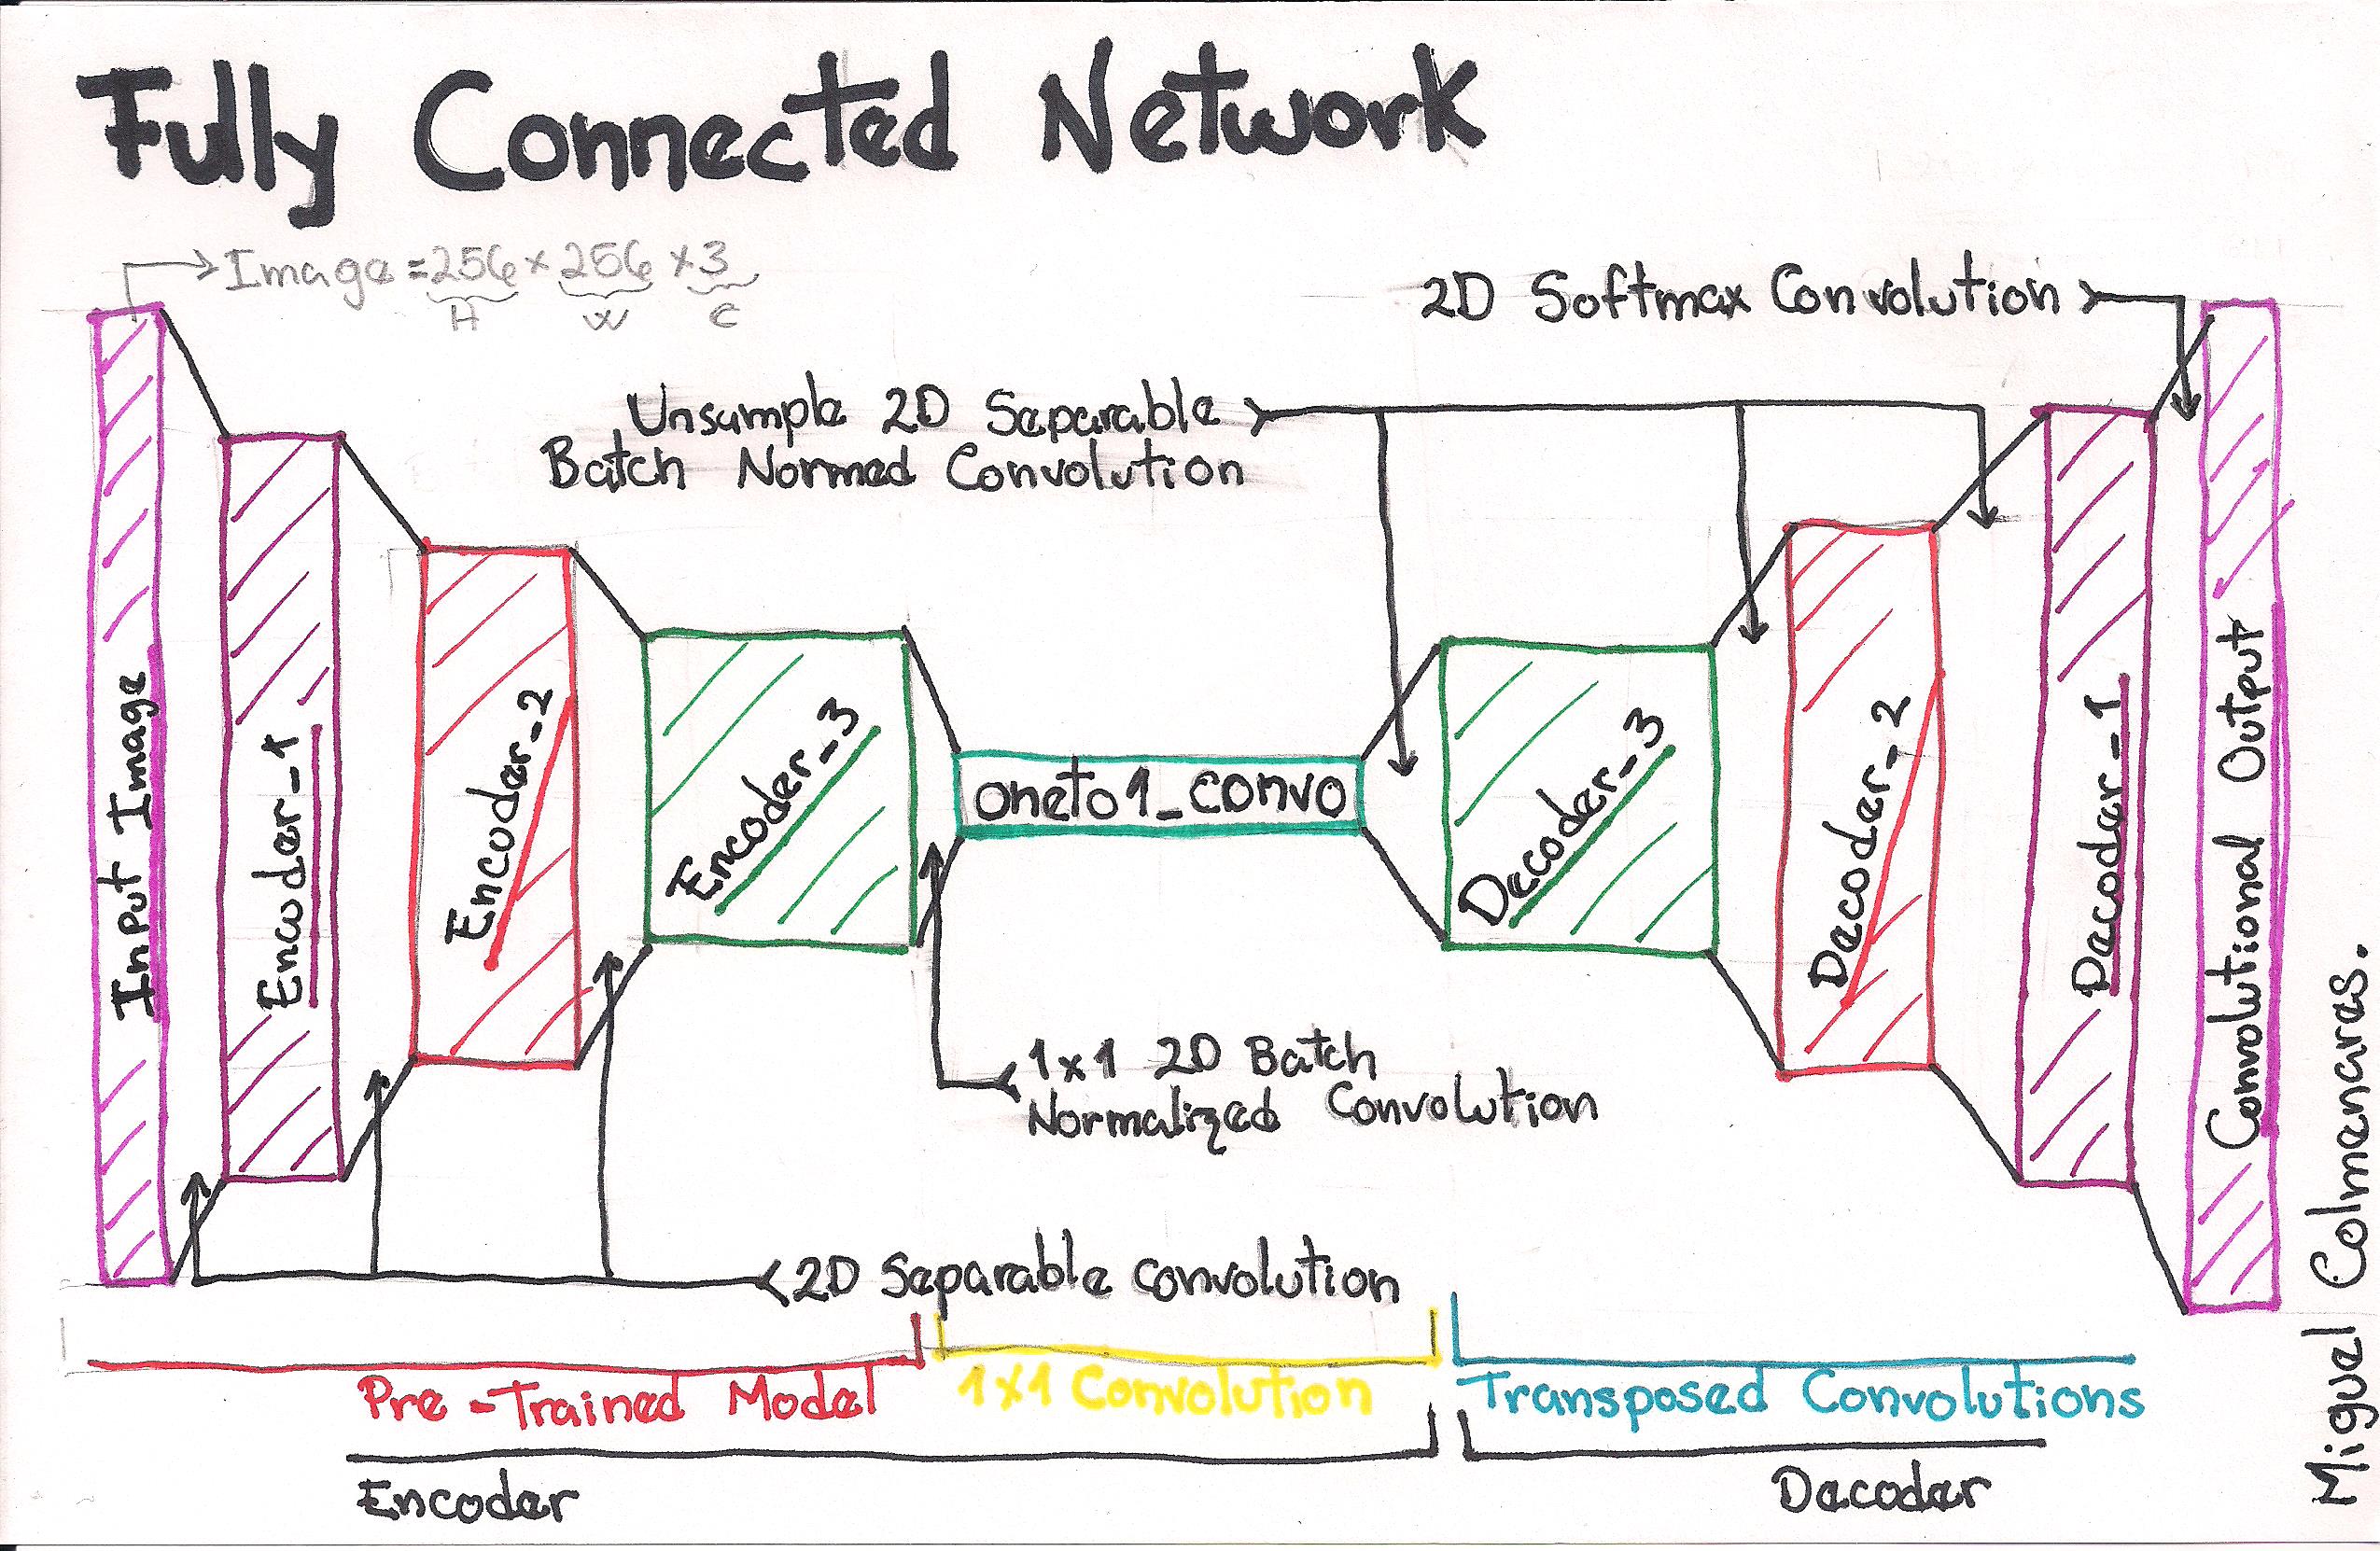 Fully Connected Network
Image = 256 x 256 x 3
H W C
2D Softmax Convolution
Unsample 2D Separable
Batch Normed Convolution
Input Image
Encoder_1
Encoder_2
Encoder_3
oneto1_convo
Decoder_3
Decoder_2
Decoder_1
Convolutional Output
1x1 2D Batch
Normalized Convolution
2D Separable convolution
Pre-Trained Model
1x1 Convolution
Transposed Convolutions
Encoder
Decoder
Miguel Colmenares.